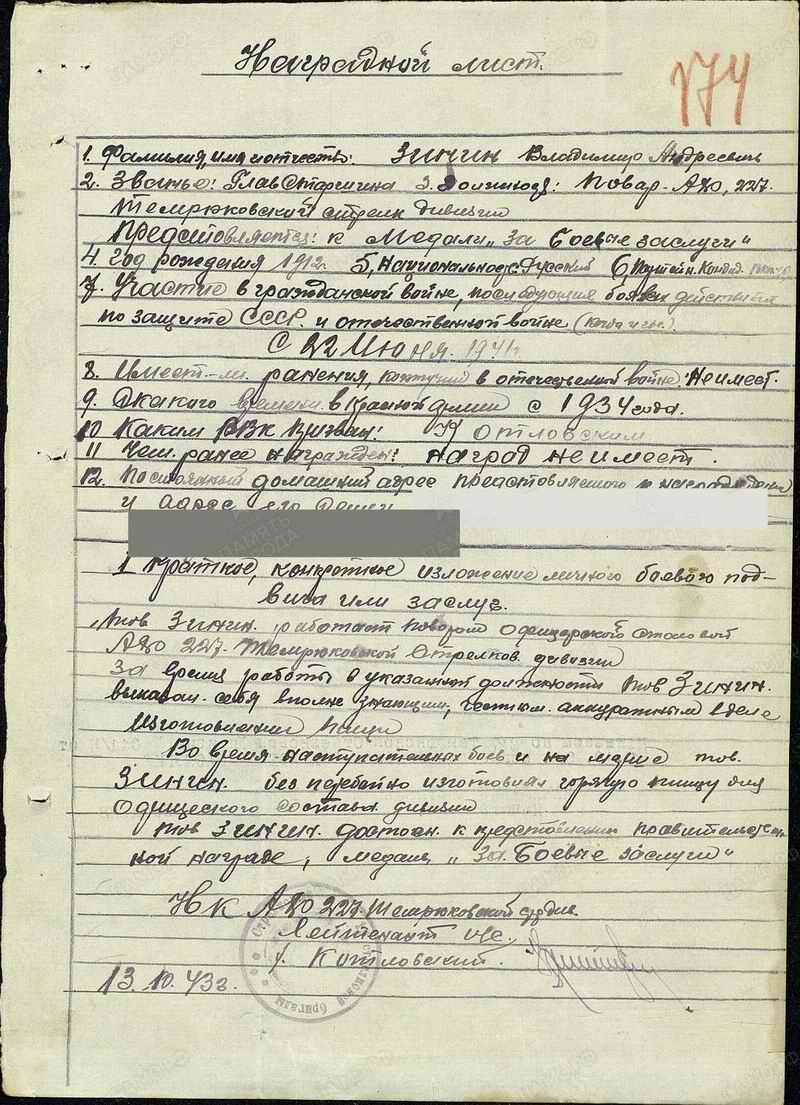 Наградной лист.
174
1. Фамилия, имя и отчество: Зинин Владимир Андреевич
2. Званье: ГлавСтаршина 3. Должность: Повар АХО, 227.
Темрюковской стрелк дивизии
Представляется: к Медали „За Боевые заслуги"
4. Год рождения 1912г. 5, Национальность Русский 6 Партийн. Кандид.
7. Участие в гражданской войне, последующих боевых действиях
по защите СССР. и отечественной войне (когда и
С 22 Июня. 1941г
8. Имеет-ли. ранения, контузии в отечественной войне Не имеет.
9. С какого времени в Красной армии с 1934 года.
10 Каким РВК призван:
11 Чем. ранее награжден: наград не имеет.
12. Постоянный домашний адрес представляемого к награждению
и адрес его семьи
1 Краткое, конкретное изложение личного боевого под-
вига или заслуг.
Тов Зинин. работает поваром офицерской столовой
АХО 227. Темрюковской Стрелков. дивизии
За время работы в указанной должности тов Зинин.
выказал себя вполне знающим, честным. аккуратным в деле
изготовления пищи
Во время наступательных боев и на марше тов.
Зинин. без перебойно изготовлял горячую пищу для
офицеского состава дивизии
Тов Зинин. достоен. к представлению правительствен-
ной награде, медаль „За Боевые заслуги"
НК АХО 227. Темрюковской стр див.
Лейтенант
Котловский.
13.10.43г.
бригады